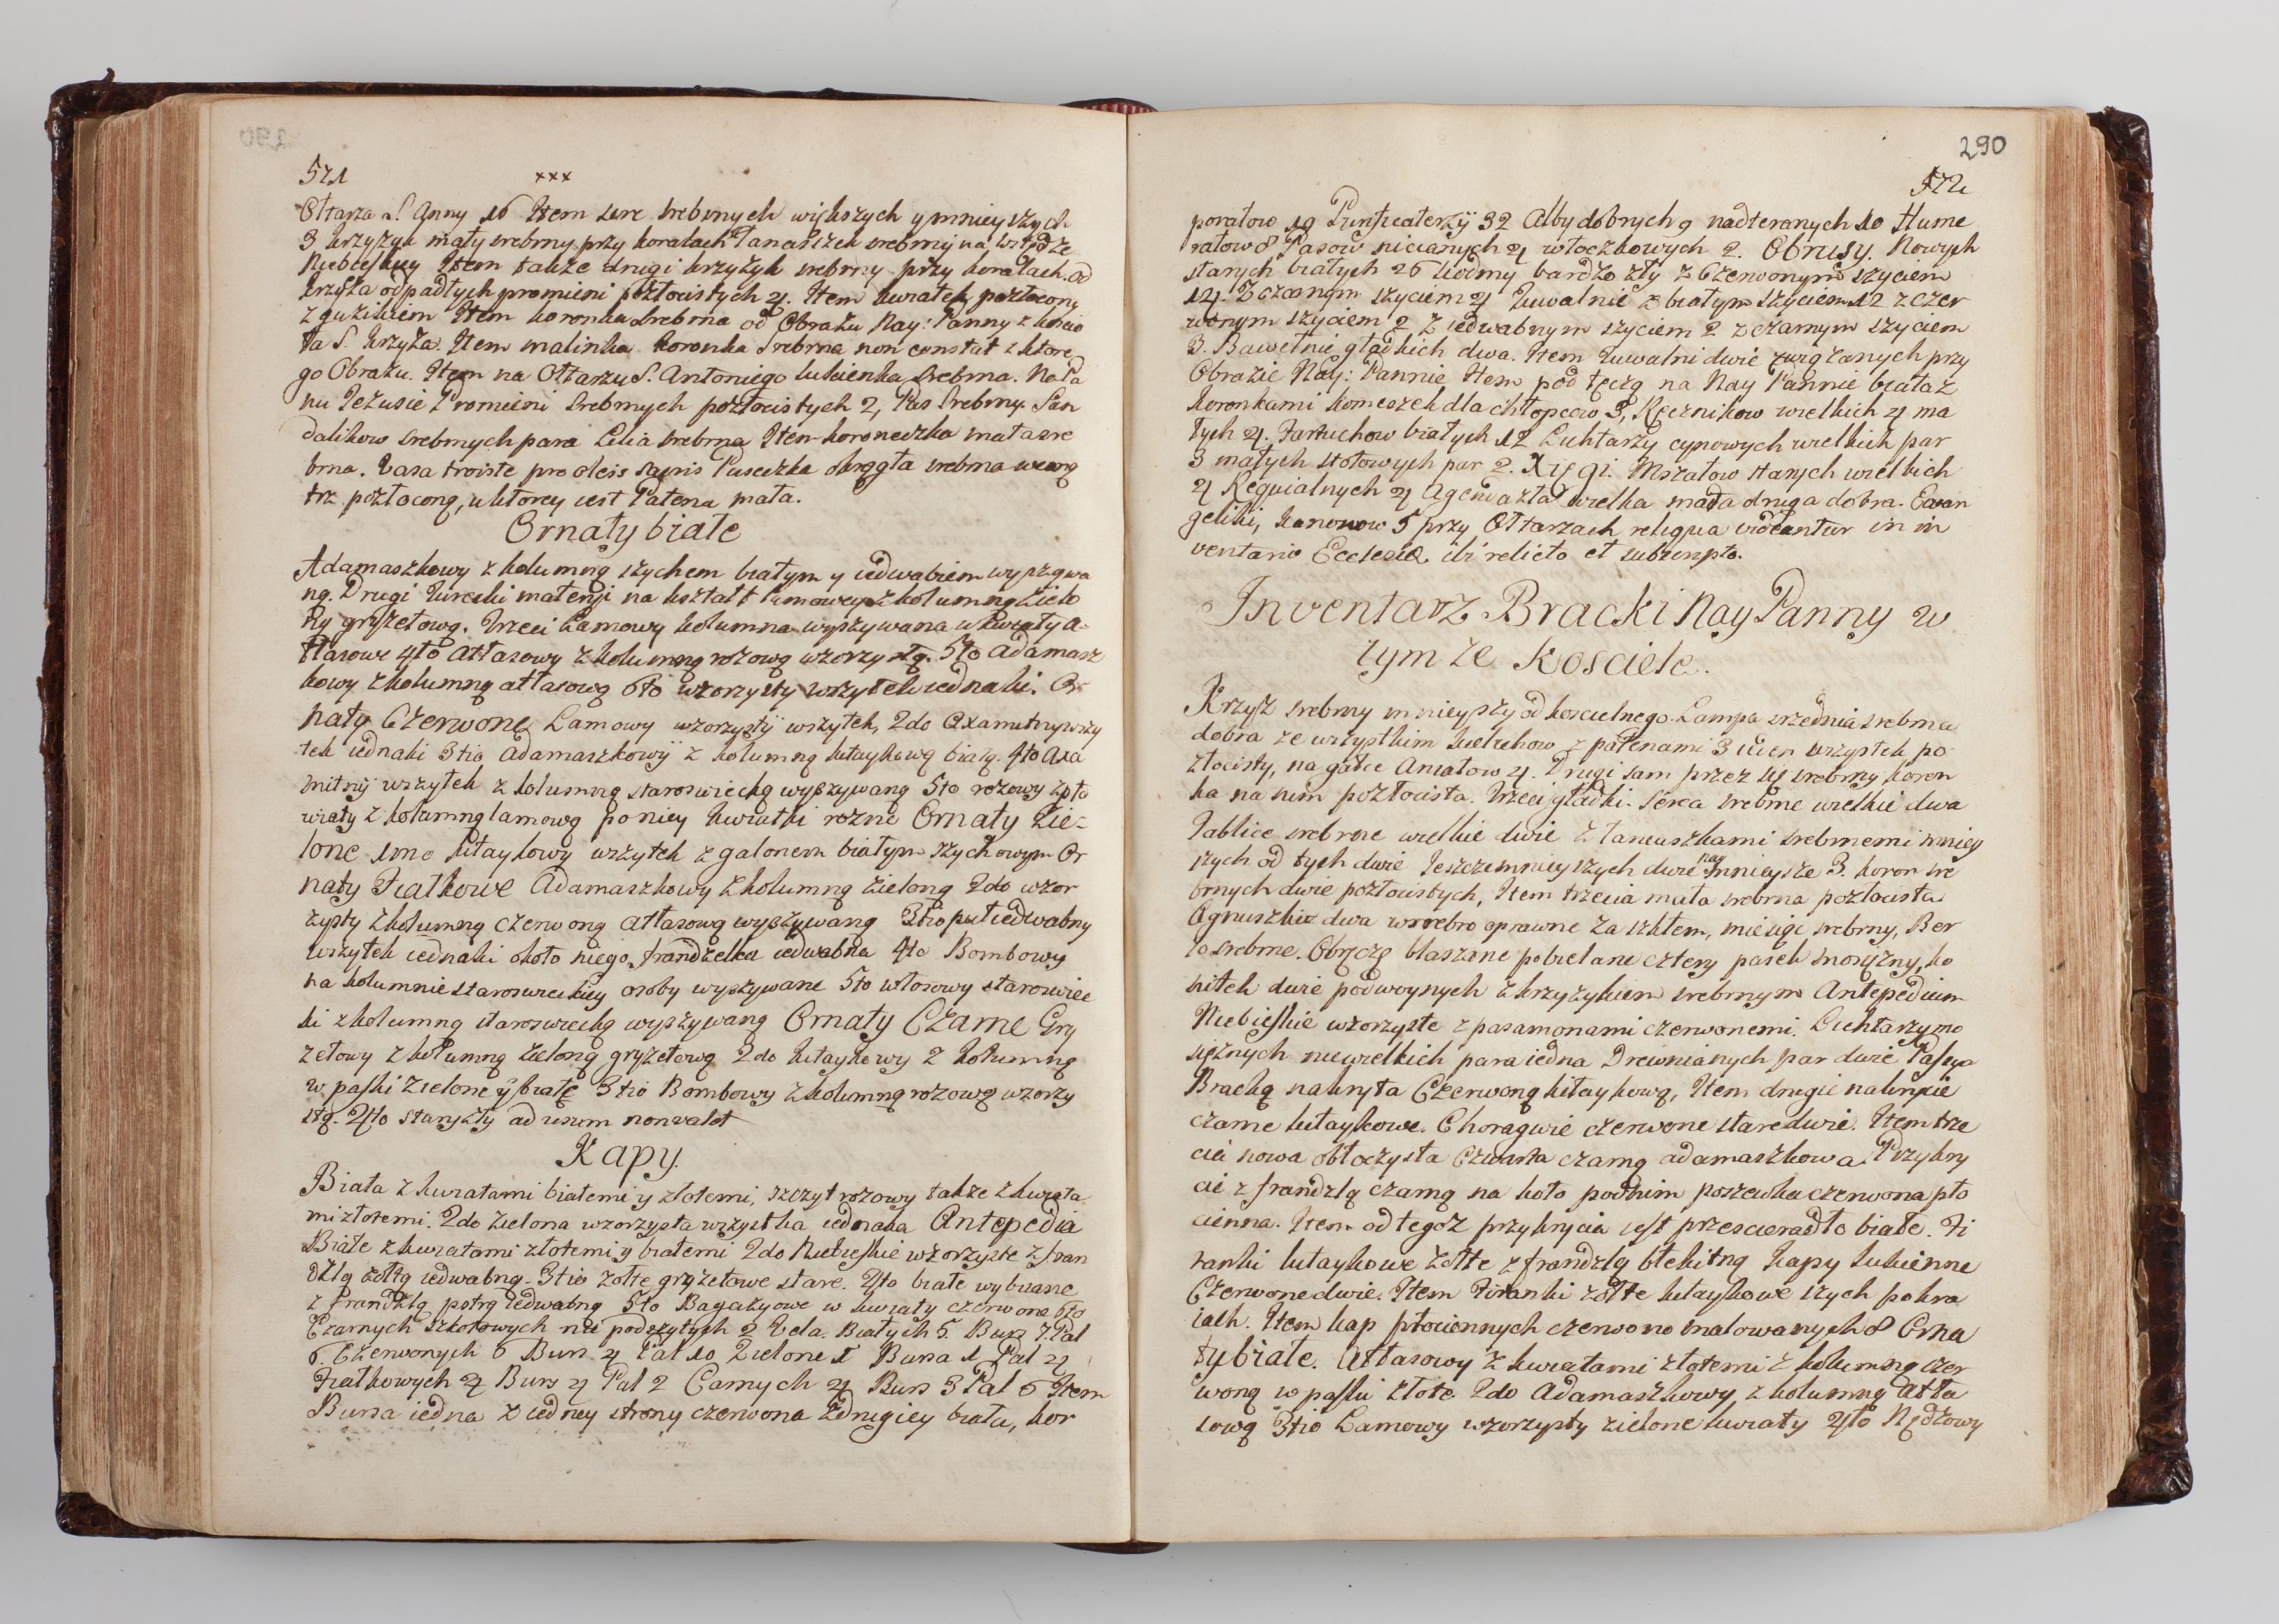 571 xxx
Ołtarza S. Anny 16 Item serc srebrnych większych y mnieyszych
3 krzyżyk mały srebrny przy koralach Łancuszek srebrny na wstędze
Niebieskiey Item także drugi krzyżyk srebrny przy koralach. od
krzyża odpadłych promieni pozłocistych 4. Item kwiatek pozłocony
z guzikiem Item koronka srebrna od Obrazu Nay: Panny z koscio
ła S. Krzyża. Item malinka koronka srebrna non constat z ktore
go Obrazu. Item na Ołtarzu S. Antoniego sukienka srebrna. Na Pa
nu Jezusie Promieni srebrnych pozłocistych 2, Pas srebrny San
dalikow srebrnych para Lilia srebrna Item koroneczka mała sre
brna. Vasa troiste pro oleis sacris Puseczka okrągła srebrna wewną
trz pozłoconą, u ktorey iest Patena mała.
Ornaty białe
Adamaszkowy z kolumną szychem białym y iedwabiem wyszywa
ną. Drugi Turecki materyi na kształt Lamowey z kolumną zielo
ną gryzetową. Trzeci Lamowy kolumna wyszywana w kwiaty a-
tłasowe 4to Atłasowy z kolumną rożową wzorzystą. 5to Adamasz
kowy z kolumną atłasową 6to wzorzysty wszytek iednaki. Or
naty Czerwone Lamowy wzorzysty wszytek, 2do Axamitny wszy
tek iednaki 3tio Adamaszkowy z kolumną kitaykową białą. 4to Axa
mitny wszytek z kolumną staroswiecką wyszywaną 5to rożowy złoto
wiaty z kolumną lamową po niey kwiatki rożne Ornaty Zie-
lone 1mo kitaykowy wszytek z galonem białym szychowym Or
naty Fiałkowe Adamaszkowy z kolumną zieloną 2do wzor
zysty z kolumną czerwoną atłasową wyszywaną 3tio puł iedwabny
wszytek iednaki około niego frandzelka iedwabna 4to Bombowy
na kolumnie staroswieckiey osoby wyszywane 5to włosowy staroswiec
ki z kolumną staroswiecką wyszywaną Ornaty Czarne Gry
zetowy z kolumną zieloną gryzetową 2do kitaykowy z kolumną
w paski zielone y białe 3tio Bombowy z kolumną rożową wzorzy
stą. 4to stary zły ad usum non valet
Kapy.
Biała z kwiatami białemi y złotemi, szczyt rożowy także z kwiata
mi złotemi. 2do zielona wzorzysta wszystka iednaka Antepedia
Białe z kwiatami złotemi y białemi 2do Niebieskie wzorzyste z fran
dzlą żołtą iedwabną. 3tio żołte gryzetowe stare. 4to białe wybiiane
z frandzlą pstrą iedwabną 5to Bagazyowe w kwiaty czerwone 6to
Czarnych szkotowych nie podszytych 2 Vela. Białych 5. Burs 7. Pal
6. Czerwonych 6 Burs 4 Pal 10 Zielone 1 Bursa 1 Pal 4
Fiałkowych 4 Burs 4 Pal 2 Carnych 4 Burs 3 Pal 6 Item
Bursa iedna z iedney strony czerwona z drugiey biała, kor
290
572
poratow 19 Purificaterzy 32 Alby dobrych 9 nadteranych 10 Hume
ratow 8 Pasow nicianych 4 włoczkowych 2. Obrusy. Nowych
starych białych 26 siodmy bardzo zły z Czerwonym szyciem
14. Z czarnym szyciem 4 Tuwalnie z białym szyciem 12 z czer
wonym szyciem 2 z iedwabnym szyciem 2 z czarnym szyciem
3. Bawełnic gładkich dwa. Item Tuwalni dwie związanych przy
Obrazie Nay: Pannie Item pod tęczą na Nay Pannie biała z
koronkami komeszek dla chłopcow 3, Ręcznikow wielkich 4 ma
łych 4. Fartuchow białych 12 Lichtarzy cynowych wielkich par
3 małych stołowych par 2. Xięgi. Mszałow starych wielkich
4 Requialnych 4 Agenda zła wielka mała druga dobra. Ewan
geliki, kanonow 5 przy Ołtarzach reliqua videantur in in
ventario Ecclesiæ ibi relicto et subscripto.
Inventarz Bracki Nay Panny w
tym że Kosciele.
Krzyż srebrny mnieyszy od koscielnego. Lampa srzednia srebrna
dobra ze wszystkim kielichow z patenami 3 ieden wszystek po
złocisty, na gałce Aniałow 4. Drugi sam przez się srebrny koron
ka na nim pozłocista. Trzeci gładki. Serca srebrne wielkie dwa
Tablice srebrne wielkie dwie z łancuszkami srebrnemi mniey
szych od tych dwie Jeszcze mnieyszych dwie nay mnieysze 3. koron sre
brnych dwie pozłocistych, Item trzecia mała srebrna pozłocista
Agnuszki dwa w srebro oprawne za szkłem, miesiąc srebrny, Ber
ło srebrne. Obręcze blaszane pobielane cztery pasek mosiężny, ko
nitek dwie podwoynych z krzyżykiem srebrnym Antepedium
Niebieskie wzorzyste z pasamonami czerwonemi. Lichtarzy mo
siężnych niewielkich para iedna Drewnianych par dwie Passya
Bracką nakryta Czerwoną kitaykową, Item drugie nakrycie
czarne kitaykowe. Choragwie czerwone stare dwie. Item trze
cia nowa obłoczysta Czwarta czarną adamaszkowa. Przykry
cie z frandzlą czarną na koło pod nim poszewka czerwona pło
cienna. Item od tegoż przykrycia iest przescieradło białe. Fi
ranki kitaykowe żołte z frandzlą błekitną kapy sukienne
Czerwone dwie. Item Firanki żołte kitaykowe szych po kra
iach. Item kap płociennych czerwono malowanych 8 Orna
ty białe. Atłasowy z kwiatami złotemi z kolumną czer
woną w paski złote 2do Adamaszkowy z kolumną Atła
sową 3tio Lamowy wzorzysty zielone kwiaty 4to